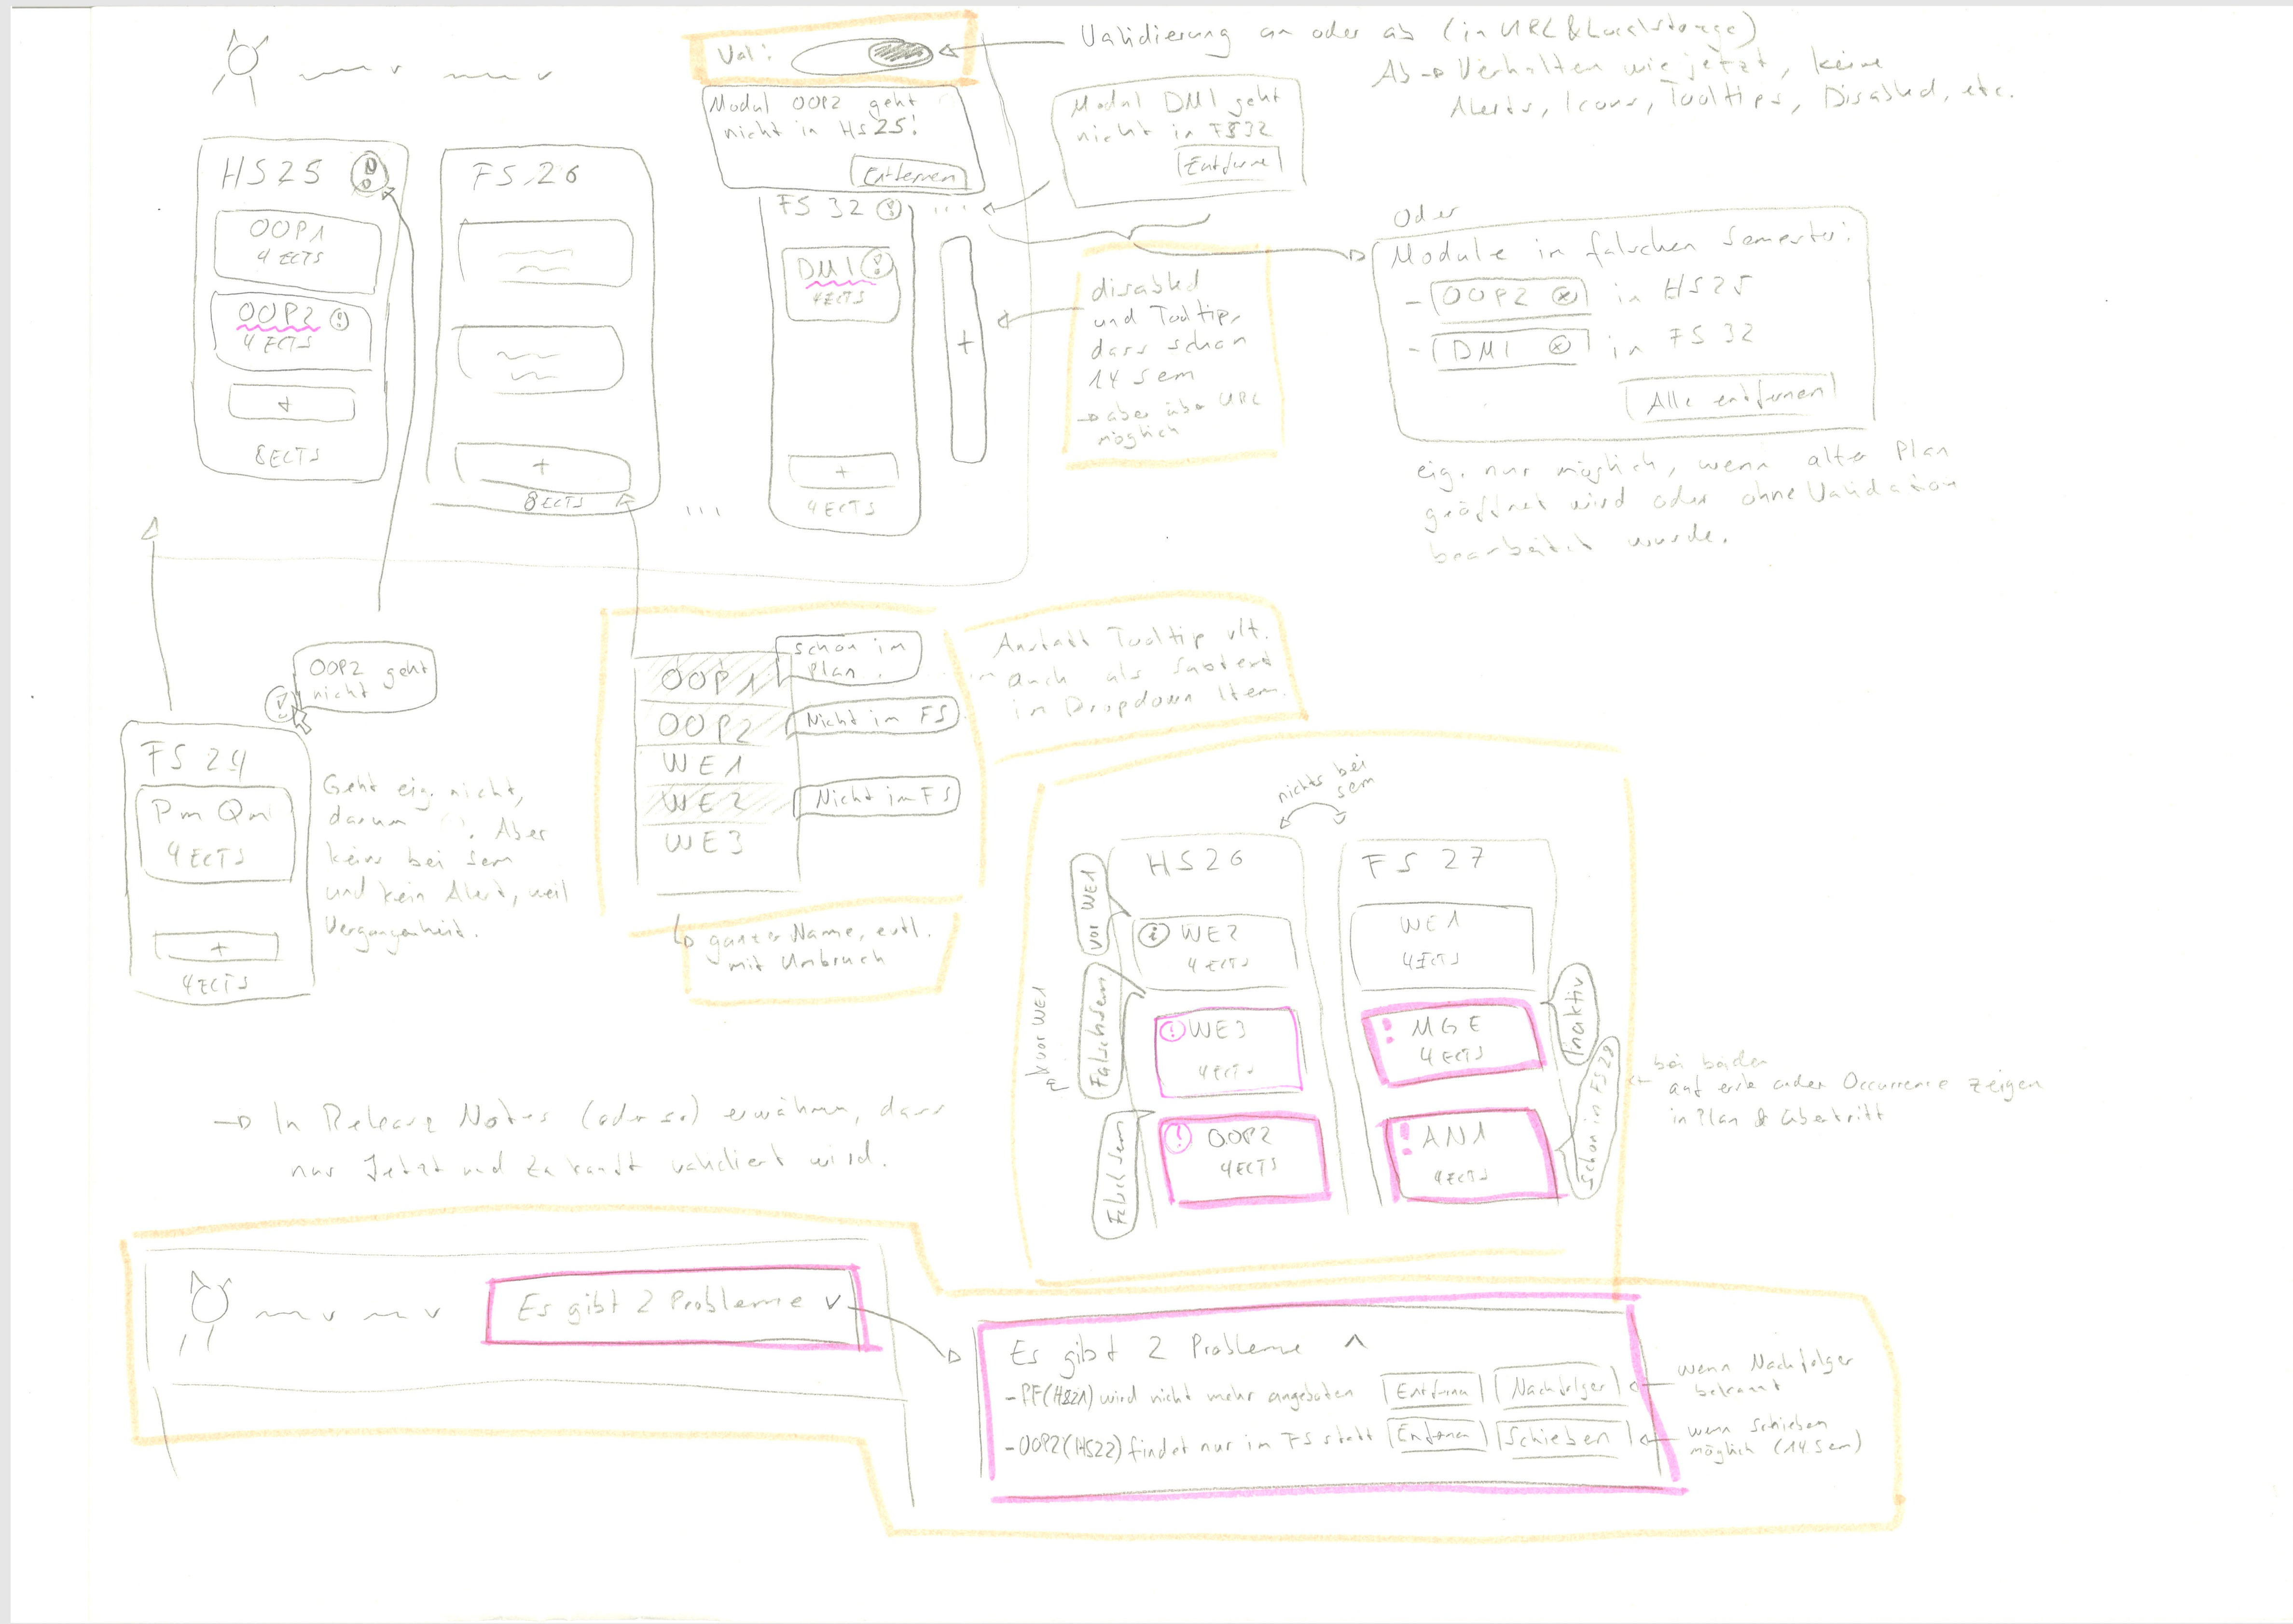 Val:
Validierung an oder ab (in URL & Localstorage)
Ab → Verhalten wie jetzt, keine
Alerts, Icons, Tooltips, Disabled, etc.
Modul OOP2 geht
nicht in HS25!
Entfernen
Modul DM1 geht
nicht in FS32
Entferne
HS25
OOP1
4 ECTS
OOP2
4 ECTS
+
8 ECTS
FS 26
+
8 ECTS
...
FS 32
...
DM1
4 ECTS
+
4 ECTS
+
disabled
und Tooltip,
dass schon
14 Sem
→ aber über URL
möglich
Oder
Module in falschen Semester:
- OOP2 in HS25
- DM1 in FS 32
Alle entfernen
eig. nur möglich, wenn alter Plan
geöffnet wird oder ohne Validation
bearbeitet wurde.
OOP2 geht
nicht
FS 24
Pm Qm
4 ECTS
+
4 ECTS
Geht eig. nicht,
darum . Aber
keins bei Sem
und kein Alert, weil
Vergangenheit.
OOP1
schon im
Plan
OOP2
Nicht im FS
WE1
WE2
Nicht im FS
WE3
ganzer Name, evtl.
mit Umbruch
Anstatt Tooltip vlt.
auch als Subtext
in Dropdown Item.
nichts bei
sem
HS26
vor WE1
WE2
4 ECTS
Falschsem
& vor WE1
WE3
4 ECTS
Falschsem
OOP2
4 ECTS
FS 27
WE1
4 ECTS
MGE
4 ECTS
Inaktiv
AN1
4 ECTS
bei beiden
auf erste oder Occurrence zeigen
in Plan & übertritt
→ In Release Notes (oder so) erwähnen, dass
nur Jetzt und Zukunft validiert wird.
Es gibt 2 Probleme
Es gibt 2 Probleme
- PF(HS21) wird nicht mehr angeboten Entfernen Nachfolger
wenn Nachfolger
bekannt
- OOP2(HS22) findet nur im FS statt Entfernen Schieben
wenn Schieben
möglich (14 Sem)